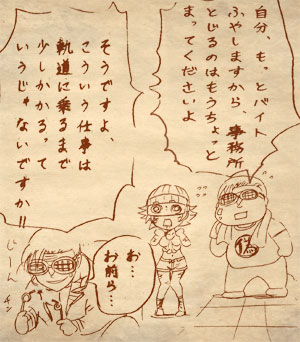 自分、もっとバイト
ふやしますから、事務所
とじるのはもうちょっと
まってくださいよ
そうですよ、
こういう仕事は
軌道に乗るまで
少しかかるって
いうじゃないですか!!
お…
お前ら…
じーん